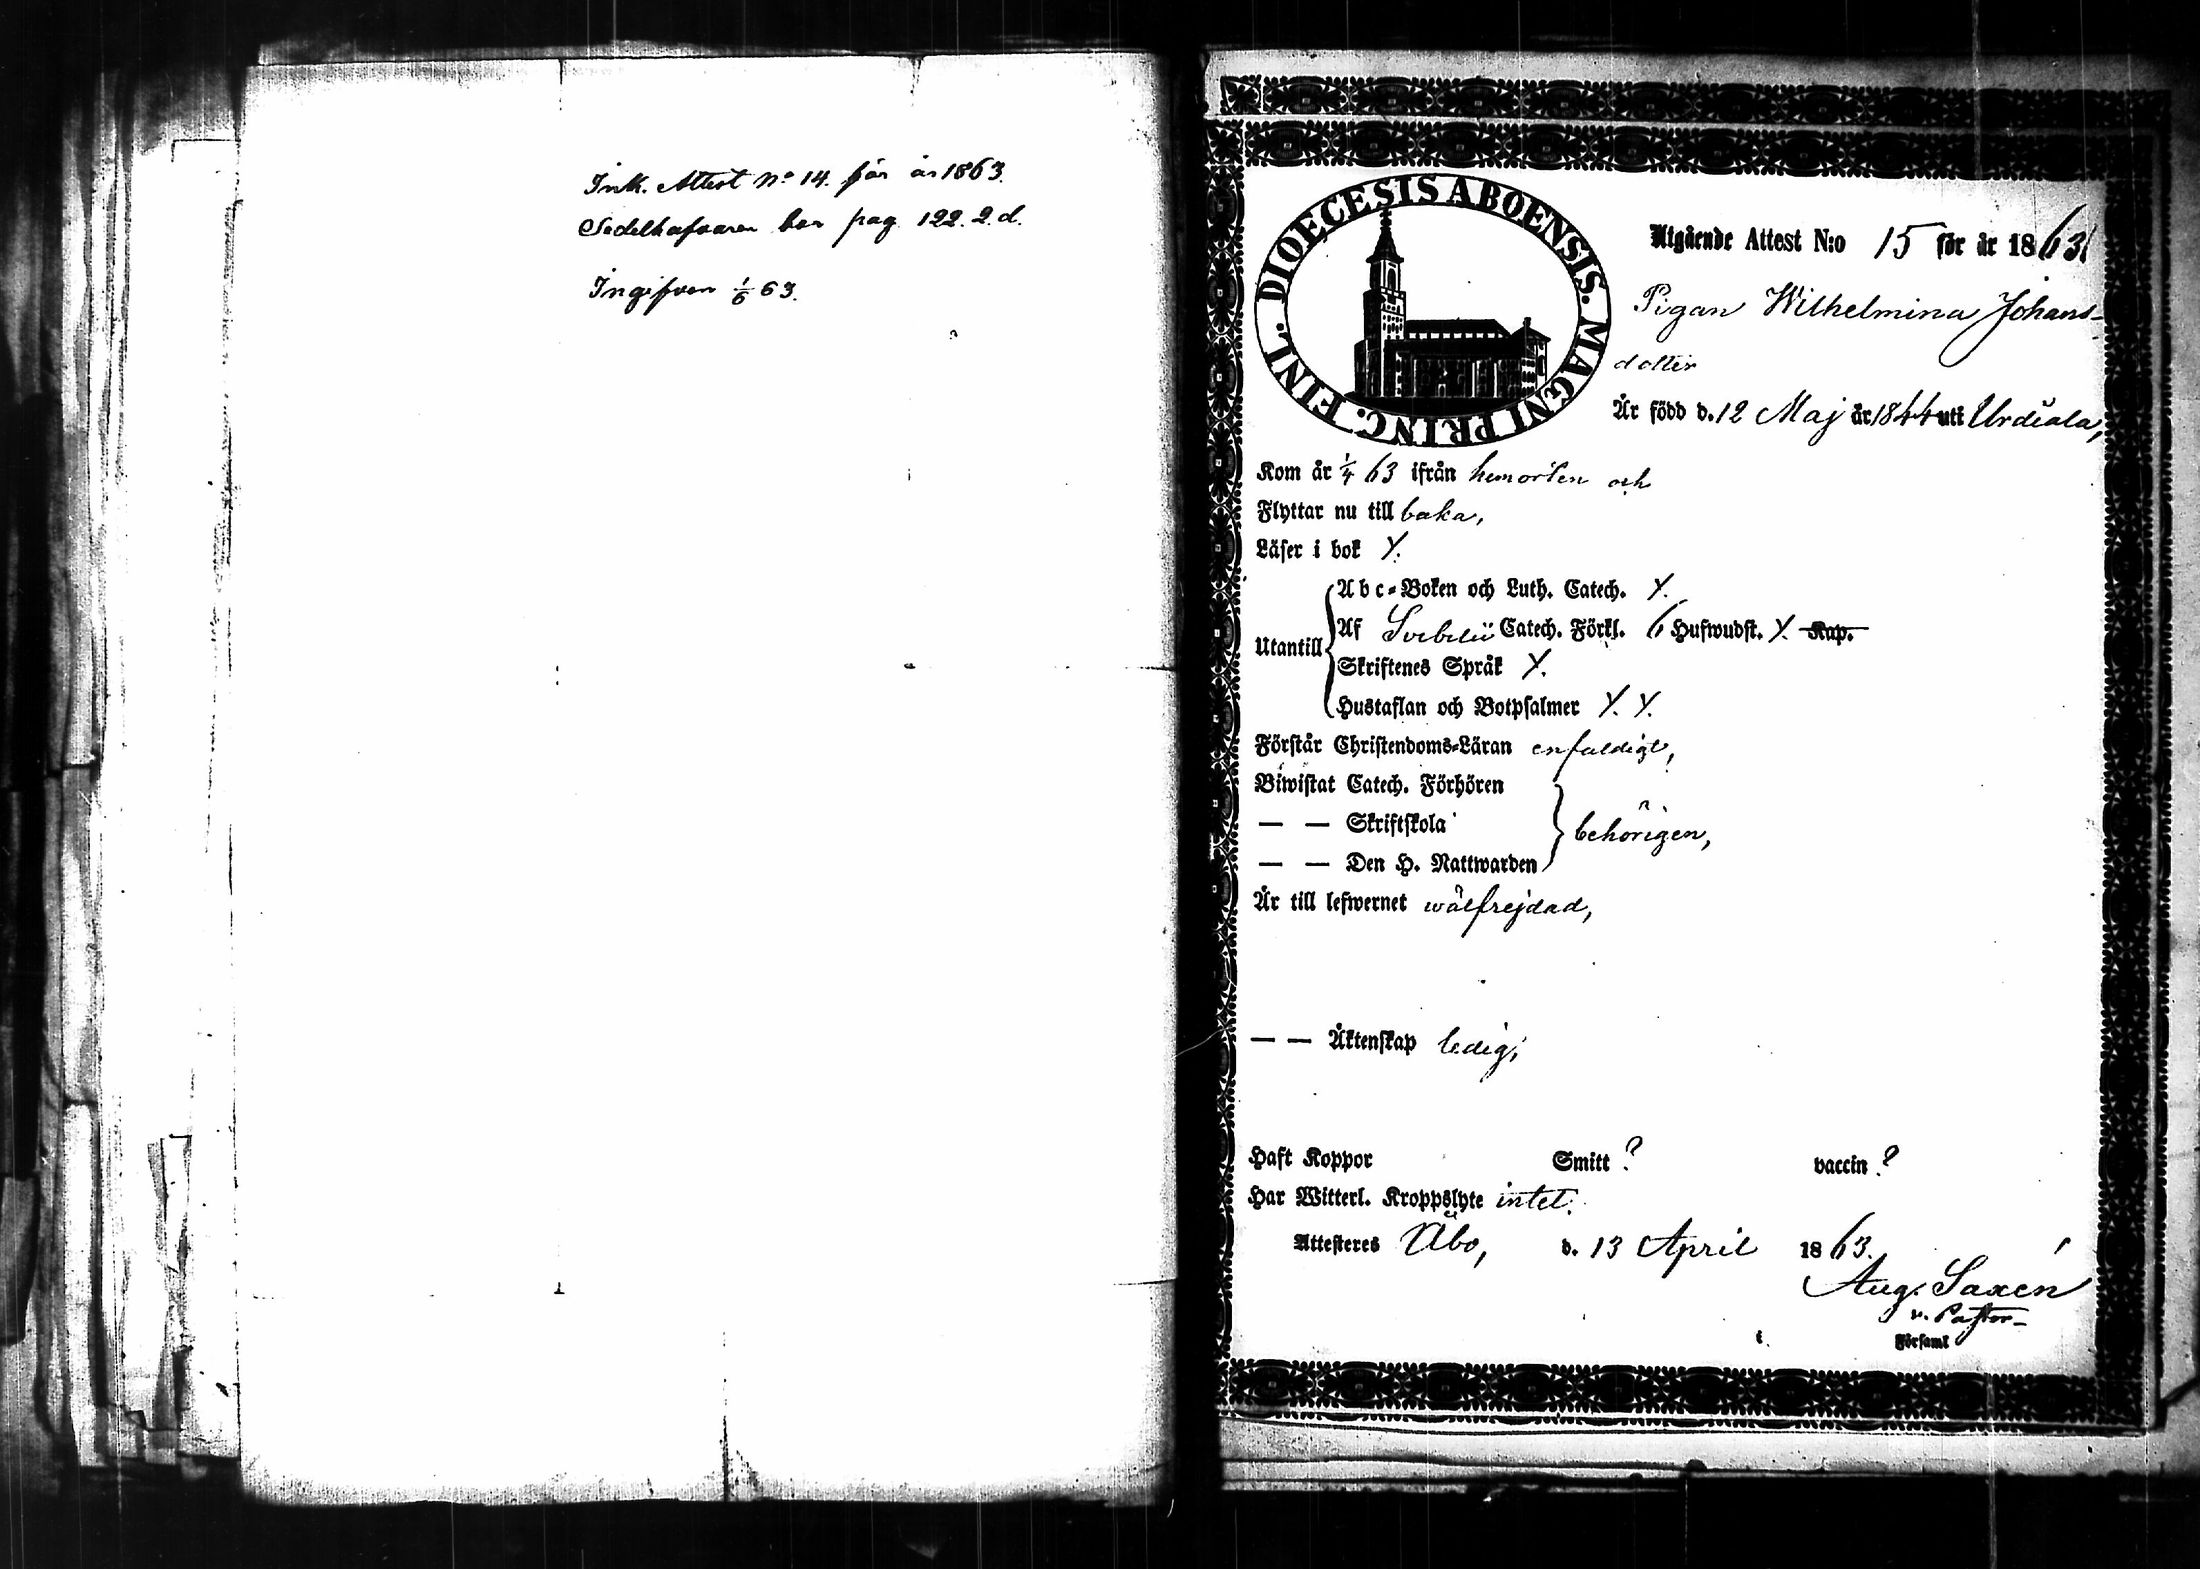 Ink. Attest No 14. för år 1863.
Sedelhafvaren bor pag 122. 2. d.
Ingifven 1/6 63.
DIOECESIS ABOENSIS. MAGNI PRINC. FINL.
Utgående Attest N:o 15 för år 1863.
Pigan Wilhelmina Johans-
dotter
Är född d. 12 Maj år 1844 uti Urdiala,
Kom år 1/4 63 ifrån hemorten och
Flyttar nu till baka,
Läser i bok Y.
Utantill
Abc-Boken och Luth. Catech. Y.
Af Svebelii Catech. Förkl. 6 Hufwudst. Y. Kap.
Skriftenes Språk Y.
Hustaflan och Botpsalmer Y. Y.
Förstår Christendoms-Läran enfaldigt,
Biwistat Catech. Förhören
— — Skriftskola behörigen,
— — Den H. Nattwarden
Är till lefwernet wälfrejdad,
— — Äktenskap ledig,
Haft Koppor Smitt ? vaccin ?
Har Witterl. Kroppslyte intet.
Attesteres Åbo, d. 13 April 1863.
Aug. Saxén
v. Pastor
i Församl